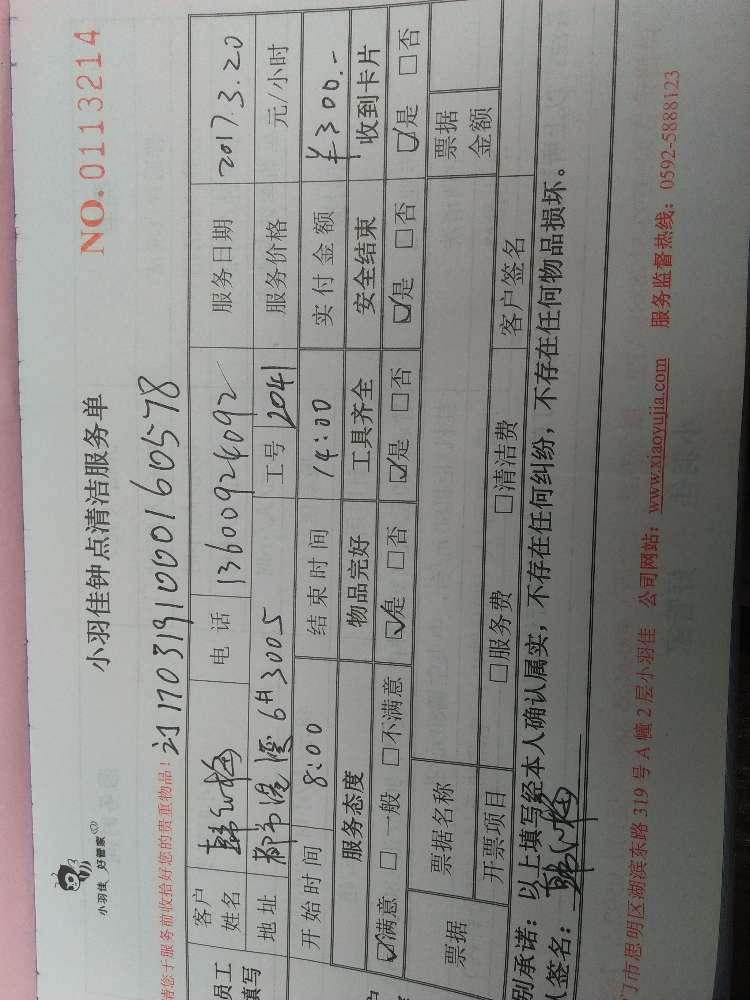 小羽佳 好管家
小羽佳钟点清洁服务单
NO.0113214
请您于服务前收拾好您的贵重物品!
客户姓名 电话 13600924092 服务日期 2017.3.20
地址 都市港湾6#3005 工号 2041 服务价格 元/小时
开始时间 8:00 结束时间 14:00 实付金额 ¥300.-
服务态度 物品完好 工具齐全 安全结束 收到卡片
☑满意 □一般 □不满意 ☑是 □否 ☑是 □否 ☑是 □否 ☑是 □否
票据 票据名称 票据金额
开票项目 □服务费 □清洁费 客户签名
别承诺：以上填写经本人确认属实，不存在任何纠纷，不存在任何物品损坏。
人签名：
门市思明区湖滨东路 319 号 A 幢 2 层小羽佳 公司网站：www.xiaoyujia.com 服务监督热线：0592-5888123
员工填写